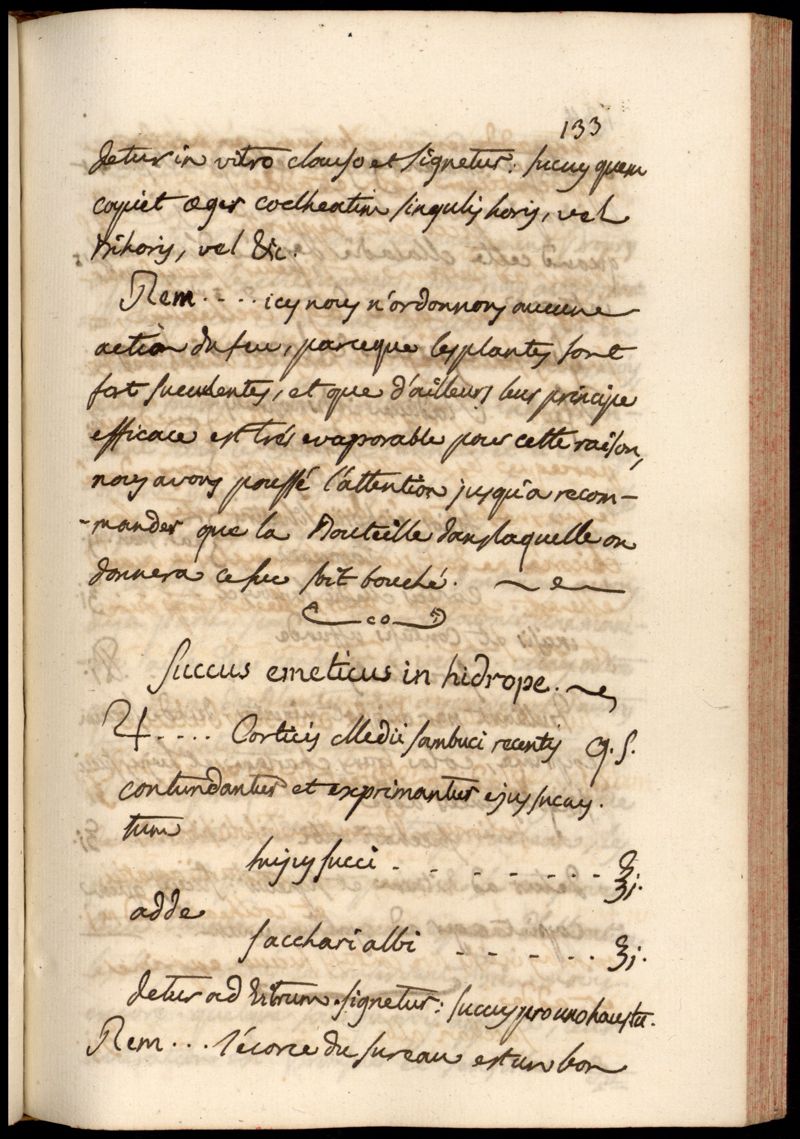 133
detur in vitro clauso et signetur: succus quem
capiet æger cochleatim singulis horis, vel
trihoris, vel &c.
Rem.... icy nous n'ordonnons aucune
action du feu, parceque les plantes sont
fort succulentes, et que d'ailleurs leur principe
efficace est très evaporable pour cette raison,
nous avons poussé l'attention jusqu'a recom-
-mander que la Bouteille dans laquelle on
donnera ce suc soit bouché.
Succus emeticus in hidrope.
♃.... Corticis Medii sambuci recentis q.s.
contundantur et exprimantur ejus sucus.
tum
hujus succi - - - - - - . . ʒj.
adde
sacchari albi - - - - . . ʒj.
detur ad vitrum. signetur: succus pro uno haustu.
Rem... l'écorce du sureau est un bon